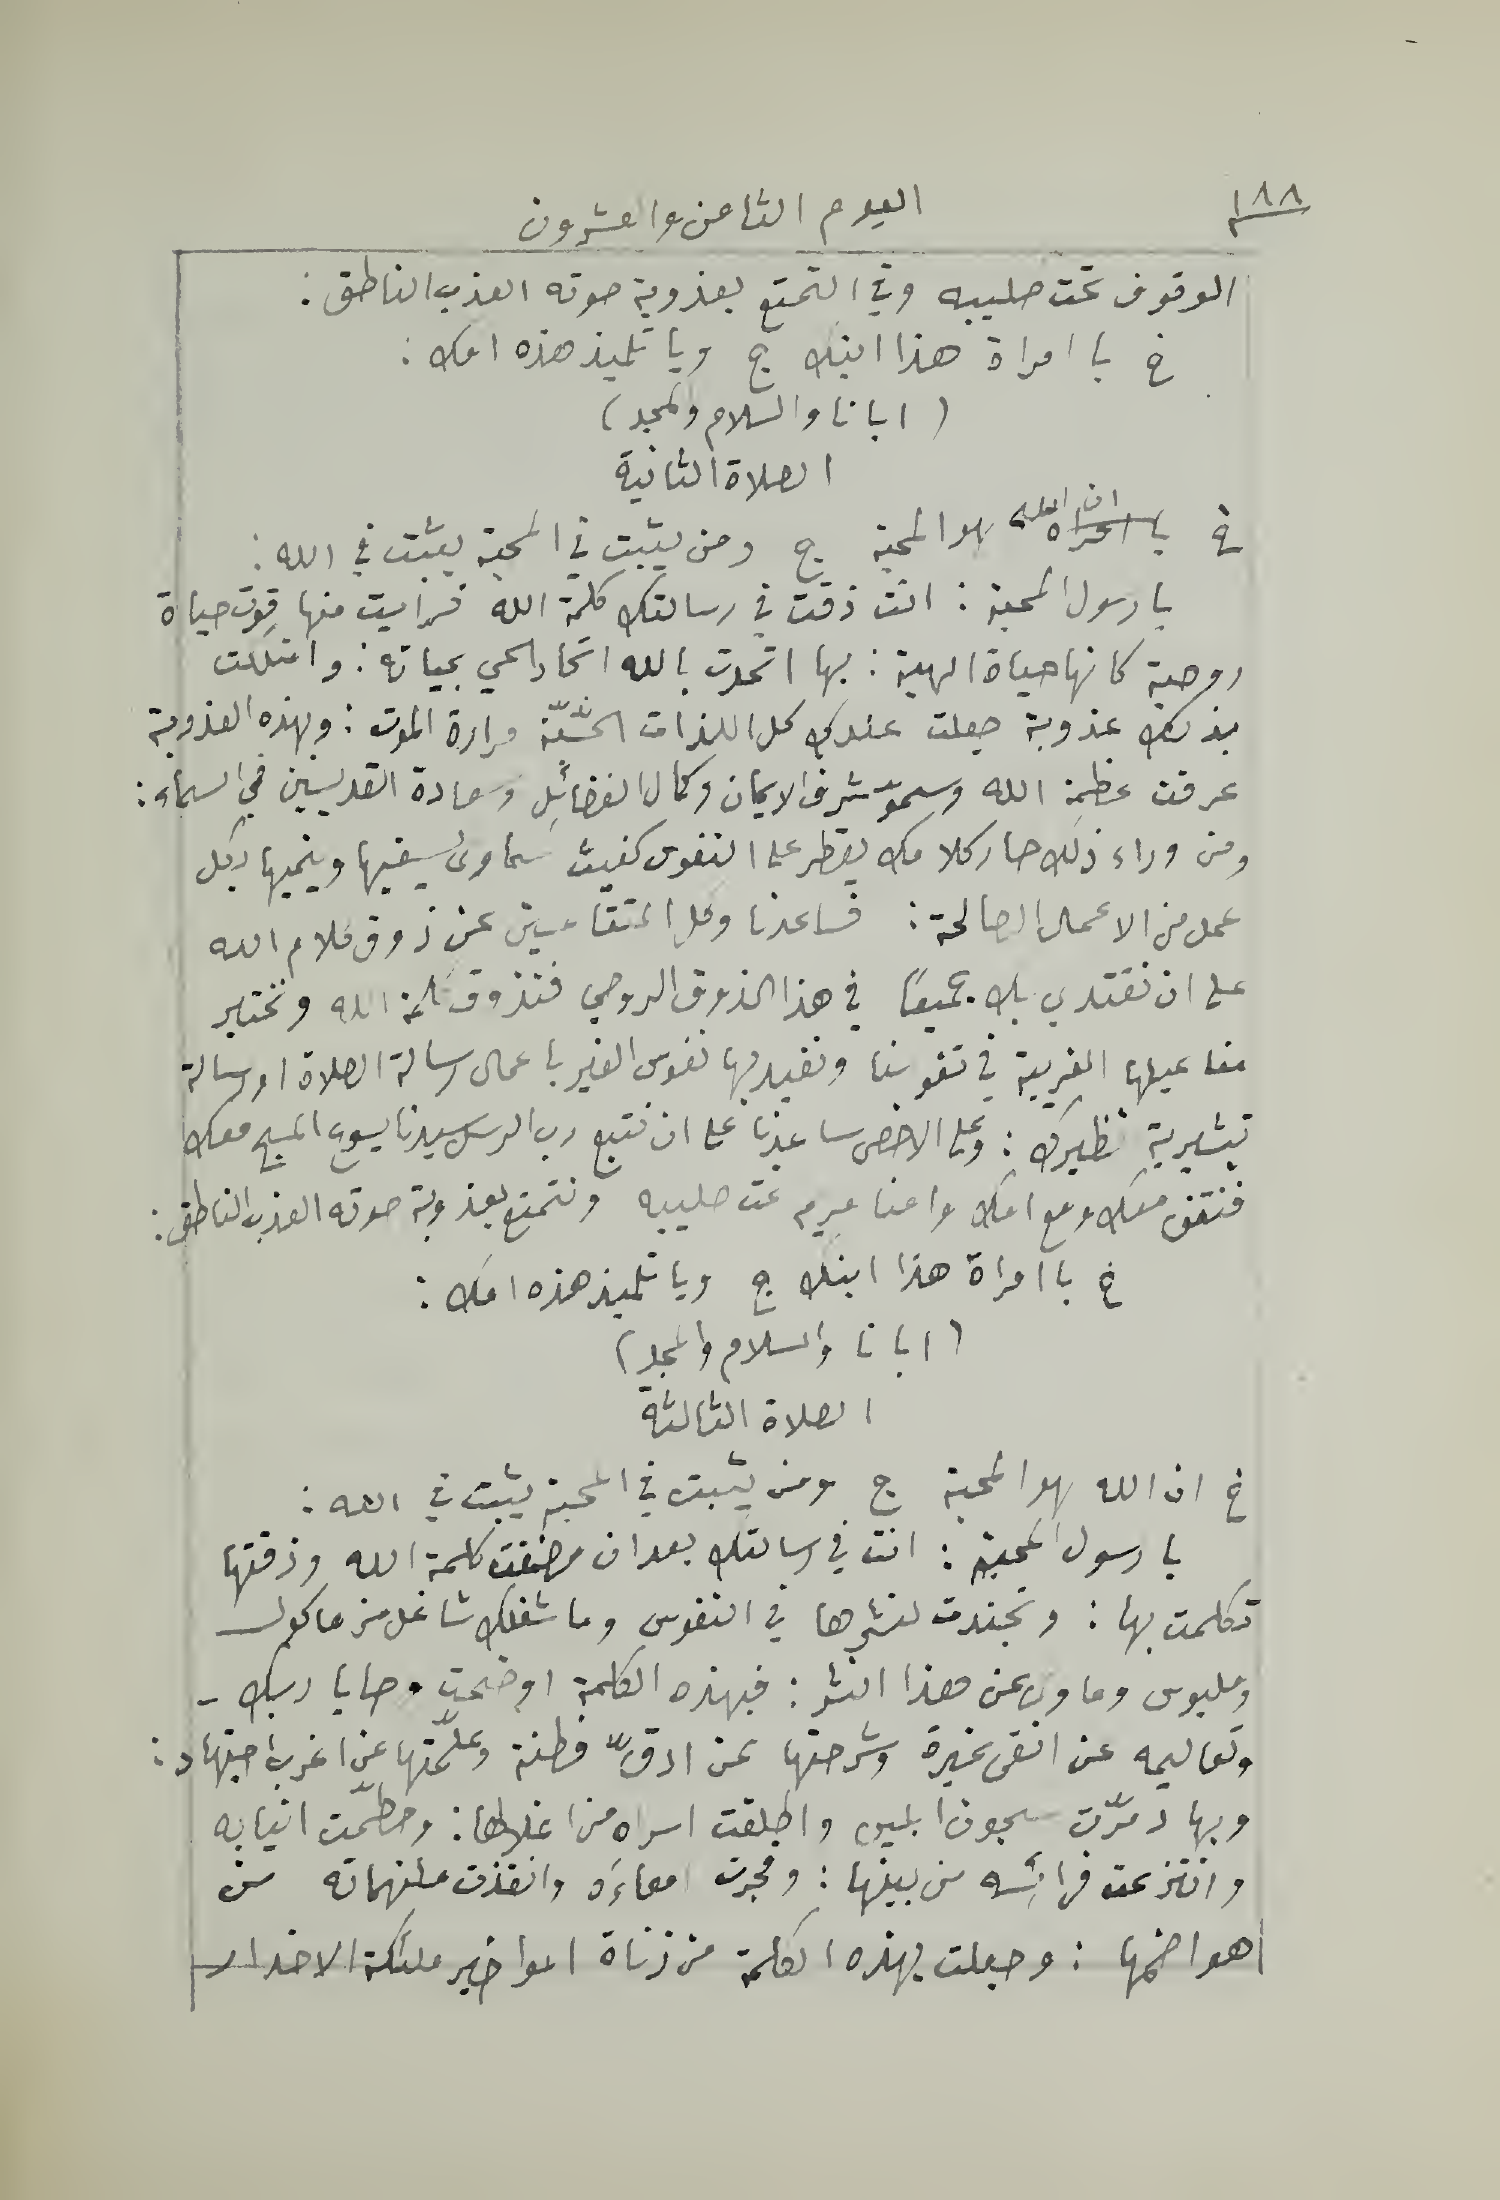 ١٨٨
اليوم الثامن والعشرون
الوقوف تحت صليبه وفي التمتع بعذوبة صوته العذب الناطق :
خ يا امراة هذا ابنك ج ويا تلميذ هذه امك :
( ابانا والسلام والمجد )
الصلاة الثانية
خ ان الله هو المحبة ج ومن يثبت في المحبة يثبت في الله :
يا رسول المحبة : انت ذقت في رسالتك كلمة الله فرايت منها قوت حياة
روحية كانها حياة الهية : بها اتحدت بالله اتحاد الحي بحياته : وامتلكت
بذلك عذوبة جعلت عندك كل اللذات الحسّيّة مرارة الموت : وبهذه العذوبة
عرفت عظمة الله وسموّ شرف الايمان وكمال الفضائل وسعادة القديسين في السماء :
ومن وراء ذلك صار كلامك يقطر على النفوس كغيث سماوي يسقيها وينميها بكل
عمل من الاعمال الصالحة : فساعدنا وكل المتقاعسين عن ذوق كلام الله
على ان نقتدي بك جميعًا في هذا الذوق الروحي فنذوق كلمة الله ونختبر
مفاعيلها الغريبة في نفوسنا ونفيد بها نفوس الغير باعمال رسالة الصلاة او رسالة
تبشيرية نظيرك : وعلى الاخص ساعدنا على ان نتبع رب الرسل سيدنا يسوع المسيح معك
فنقف معك ومع امك وامنا مريم تحت صليبه ونتمتع بعذوبة صوته العذب الناطق :
خ يا امراة هذا ابنك ج ويا تلميذ هذه امك :
( ابانا والسلام والمجد )
الصلاة الثالثة
خ ان الله هو المحبة ج ومن يثبت في المحبة يثبت في الله :
يا رسول المحبة : انت في رسالتك بعد ان مضغت كلمة الله وذقتها
تكلمت بها : وتجندت لنشرها في النفوس وما شغلك شاغل من ماكول
وملبوس وماوى عن هذا النشر : فبهذه الكلمة اوضحت وصايا ربك -
وتعاليمه عن انقى غيرة وشرحتها عن ادقّ فطنة وعلّمتها عن اغرب اجتهاد :
وبها دمّرت سجون ابليس واطلقت اسراه من اغلالها : وحطّمت انيابه
وانتزعت فرائسه من بينها : وفجرت امعاءَه وانقذت ملتهماته من
اهواضمها : وجعلت بهذه الكلمة من زناة المواخير ملئكة الاخدار